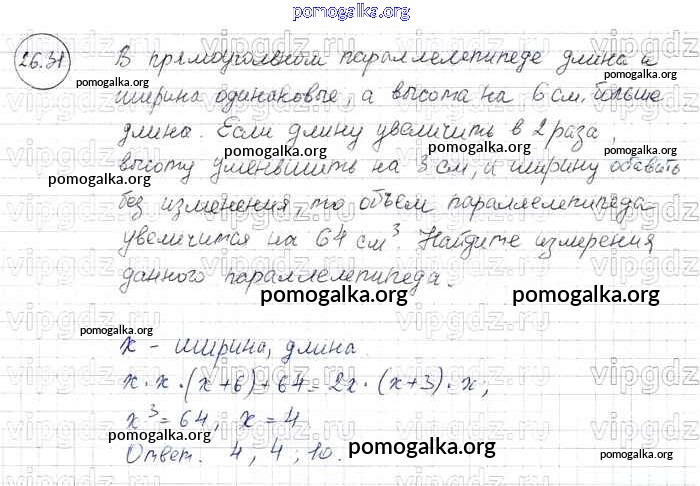 pomogalka.org
26.31 В прямоугольном параллелепипеде длина и
pomogalka.org
pomogalka.org
ширина одинаковые, а высота на 6 см. больше
pomogalka.org
длины. Если длину увеличить в 2 раза,
pomogalka.org
высоту уменьшить на 3 см, и ширину оставить
pomogalka.org
pomogalka.org
без изменения, то объем параллелепипеда
увеличится на 64 см³. Найдите измерения
данного параллелепипеда.
pomogalka.org
pomogalka.org
pomogalka.org
x - ширина, длина.
x·x·(x+6)+64=2x·(x+3)·x;
x³=64; x=4.
pomogalka.org
pomogalka.org
Ответ. 4; 4; 10.
pomogalka.org